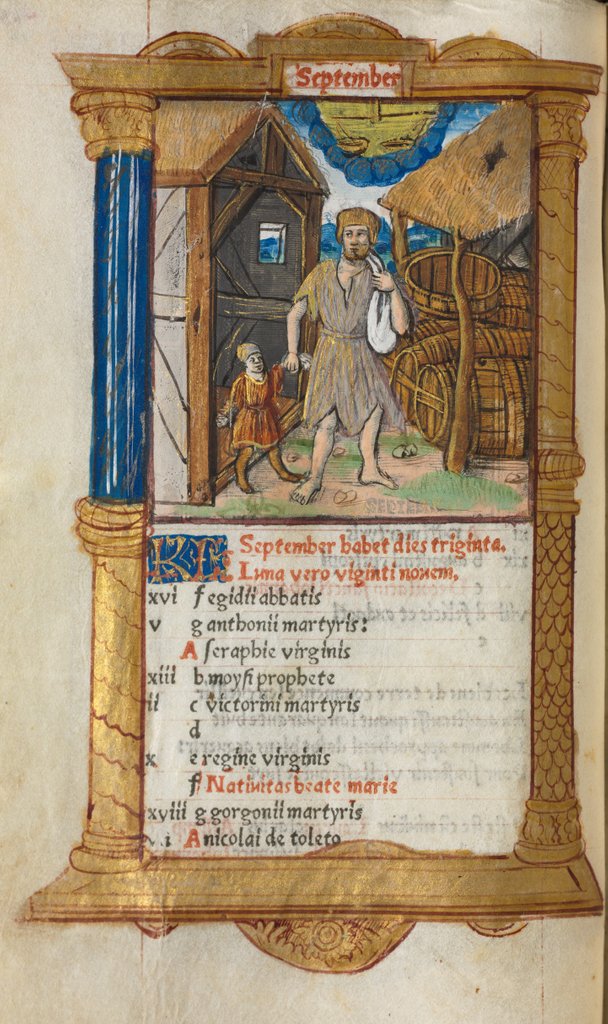 September
SEPTEM
KL September habet dies triginta.
Luna vero viginti novem.
xvi f egidii abbatis
v g anthonii martyris:
A seraphie virginis
xiii b moysi prophete
ii c victorini martyris
d
x e regine virginis
f Nativitas beate marie
xviii g gorgonii martyris
vi A nicolai de toleto